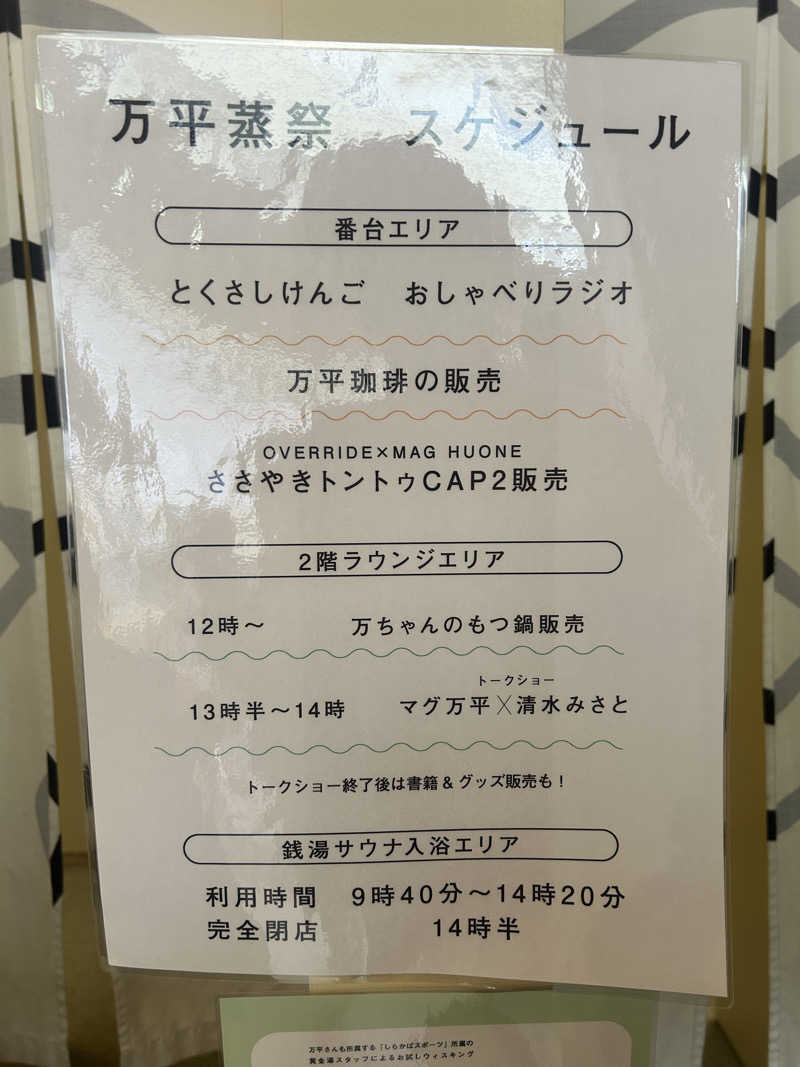 万平蒸祭　スケジュール
番台エリア
とくさしけんご　おしゃべりラジオ
万平珈琲の販売
OVERRIDE×MAG HUONE
ささやきトントゥCAP2販売
2階ラウンジエリア
12時〜　万ちゃんのもつ鍋販売
トークショー
13時半〜14時　マグ万平╳清水みさと
トークショー終了後は書籍＆グッズ販売も！
銭湯サウナ入浴エリア
利用時間　9時40分〜14時20分
完全閉店　14時半
万平さんも所属する「しらかばスポーツ」所属の
黄金湯スタッフによるお試しウィスキング